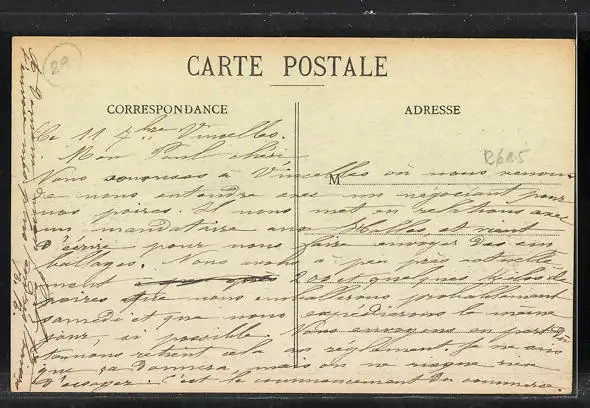 CARTE POSTALE
CORRESPONDANCE
ADRESSE
89
R685
M
Le 11 7bre Vincelles.
Mon Paul chéri
Nous sommes à Vincelles où nous venons
de nous entendre avec un négociant pour
nos poires. Il nous met en relations avec
un mandataire aux Halles et vient
d'écrire pour nous faire envoyer des em
ballages. Nous avons à peu près actuelle
ment 200 et quelques kilos de
poires que nous emballerons probablement
samedi et que nous expédierons le même
jour, si possible. Nous envoyons en port dû
retient cela au réglement. Je ne sais
que ça donnera, mais on ne risque rien
d'essayer. C'est le commencement du commerce.